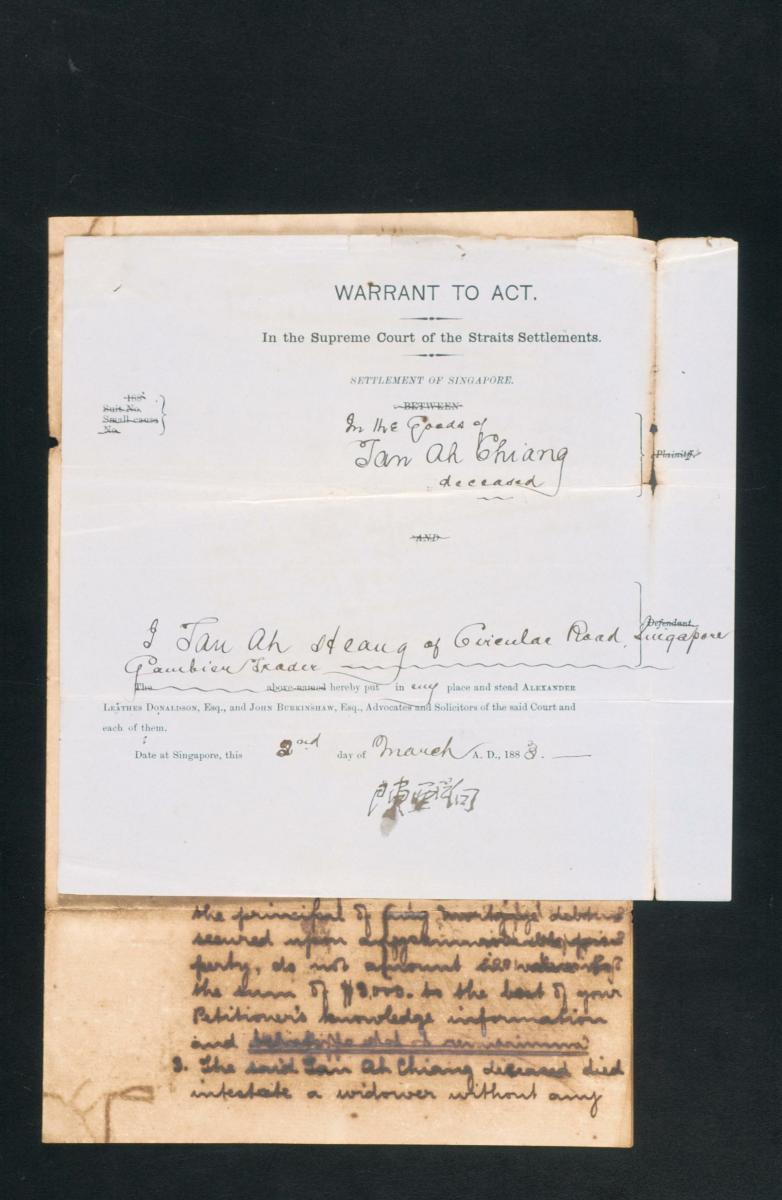 WARRANT TO ACT.
In the Supreme Court of the Straits Settlements.
SETTLEMENT OF SINGAPORE.
188
Suit No.
Small cause
No.
BETWEEN
In the Goods of
Tan Ah Chiang
deceased
Plaintff.
AND
Defendant.
I Tan Ah Heang of Circular Road, Singapore
Gambier Trader
The above-named hereby put in my place and stead ALEXANDER
LEATHES DONALDSON, Esq., and JOHN BURKINSHAW, Esq., Advocates and Solicitors of the said Court and
each of them.
Date at Singapore, this 2nd day of March A. D., 1883.
陳亞
the principal of mortgage debts
secured upon
perty, do not amount
the sum of $3,000. to the best of your
Petitioner's knowledge information
and
3. The said Tan Ah Chiang deceased died
intestate a widower without any